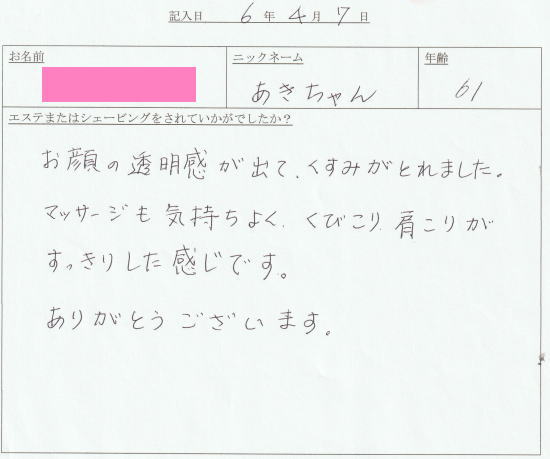 記入日 6年 4月 7日
お名前
ニックネーム
年齢
あきちゃん
61
エステまたはシェービングをされていかがでしたか？
お顔の透明感が出て、くすみがとれました。
マッサージも気持ちよく、くびこり、肩こりが
すっきりした感じです。
ありがとうございます。